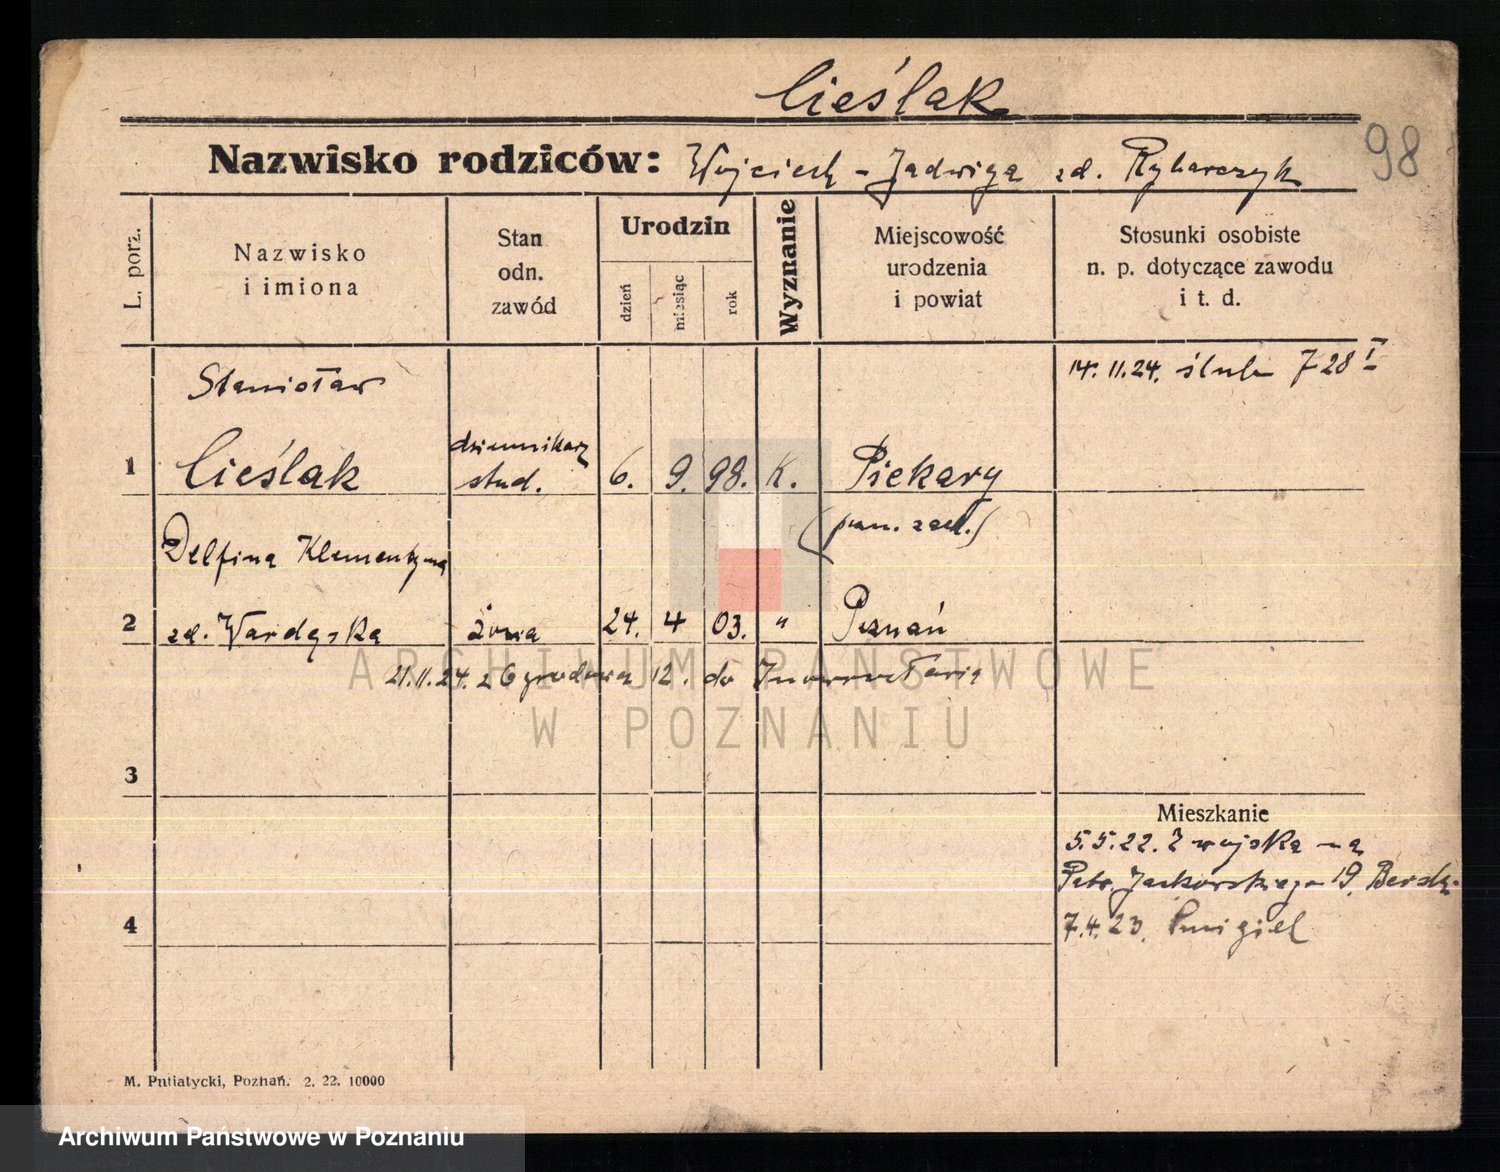 Cieślak
98
Nazwisko rodziców: Wojciech - Jadwiga zd. Rybarczyk
L. porz.
Nazwisko
i imiona
Stan
odn.
zawód
Urodzin
dzień
miesiąc
rok
Wyznanie
Miejscowość
urodzenia
i powiat
Stosunki osobiste
n. p. dotyczące zawodu
i t. d.
14. 11. 24. ślub 728 I
Stanisław
1 Cieślak
dziennikarz
stud.
6. 9. 98. K. Piekary
(pozn. zach.)
Delfina Klementyna
2 zd. Wardęska żona 24. 4 03. " Poznań
21. 11. 24. z Ogrodowa 12. do
ARCHIWUM PAŃSTWOWE
W POZNANIU
3
Mieszkanie
5. 5. 22. Z wojska na
Patr. Jackowskiego 19.
4
7. 4. 23. Śmigiel
M. Putiatycki, Poznań. 2. 22. 10000
Archiwum Państwowe w Poznaniu